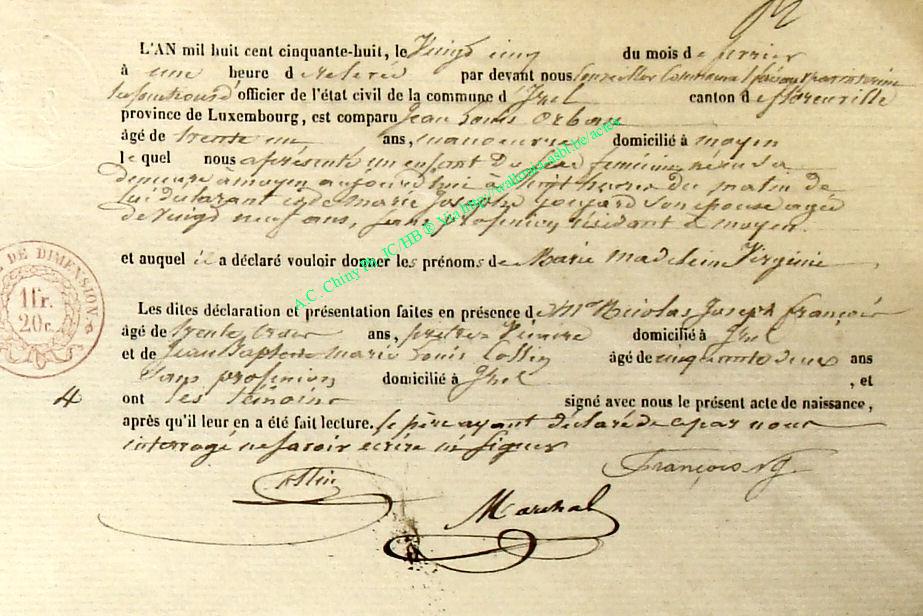 L'AN mil huit cent cinquante-huit, le Vingt cinq du mois de fevrier
à une heure de relevée par devant nous Conseiller Communal faisant par interim
les fonctions d'officier de l'état civil de la commune d'Izel canton de florenville
province de Luxembourg, est comparu Jean Louis Orban
âgé de trente un ans, manoeuvre domicilié à moyen
lequel nous a présenté un enfant du sexe feminin né en sa
demeure à moyen aujourd'hui à huit heures du matin de
lui déclarant et de Marie Joseph Goffard son épouse agée
de vingt neuf ans, sans profession résidant à moyen.
et auquel il a déclaré vouloir donner les prénoms de Marie Madeleine Virginie
Les dites déclaration et présentation faites en présence de Mr Nicolas Joseph François
âgé de trente trois ans, pretre Vicaire domicilié à Izel
et de Jean Baptiste marie Louis Collin âgé de cinquante deux ans
sans profession domicilié à Izel , et
4 ont les témoins signé avec nous le présent acte de naissance,
après qu'il leur en a été fait lecture. Le père ayant déclaré de ce par nous
interrogé ne savoir écrire ni signer
François NJ
Collin
Marchal
DE DIMENSION
1 fr.
20 c.
A.C. Chiny Ph. JC/HB ® Via http://wallonica.asbl.be/actes